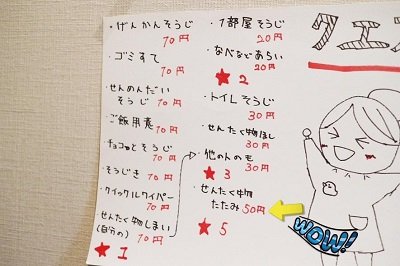 ・げんかんそうじ
10円
・ゴミすて
10円
・せんめんだい
そうじ 10円
・ご飯用意
10円
・チョコっとそうじ
10円
・そうじき 10円
・クイックルワイパー
10円
・せんたく物しまい
(自分の) 10円
★1
・1部屋そうじ
20円
・なべなどあらい
★2 20円
・トイレそうじ
30円
・せんたく物ほし
30円
・他の人のモ
★3 30円
・せんたく物
たたみ 50円
★5
クエ
WOW!